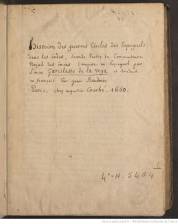 Histoire des guerres Civiles des Espagnols
dans les indes, Seconde Partie des Commentaires
Royal des incas. Composée en Espagnol par
l'inca Garcilasso de la vega et traduite
en françois Par Jean Baudoin
Paris, chez augustin Courbé. 1650.
4° H. 5464